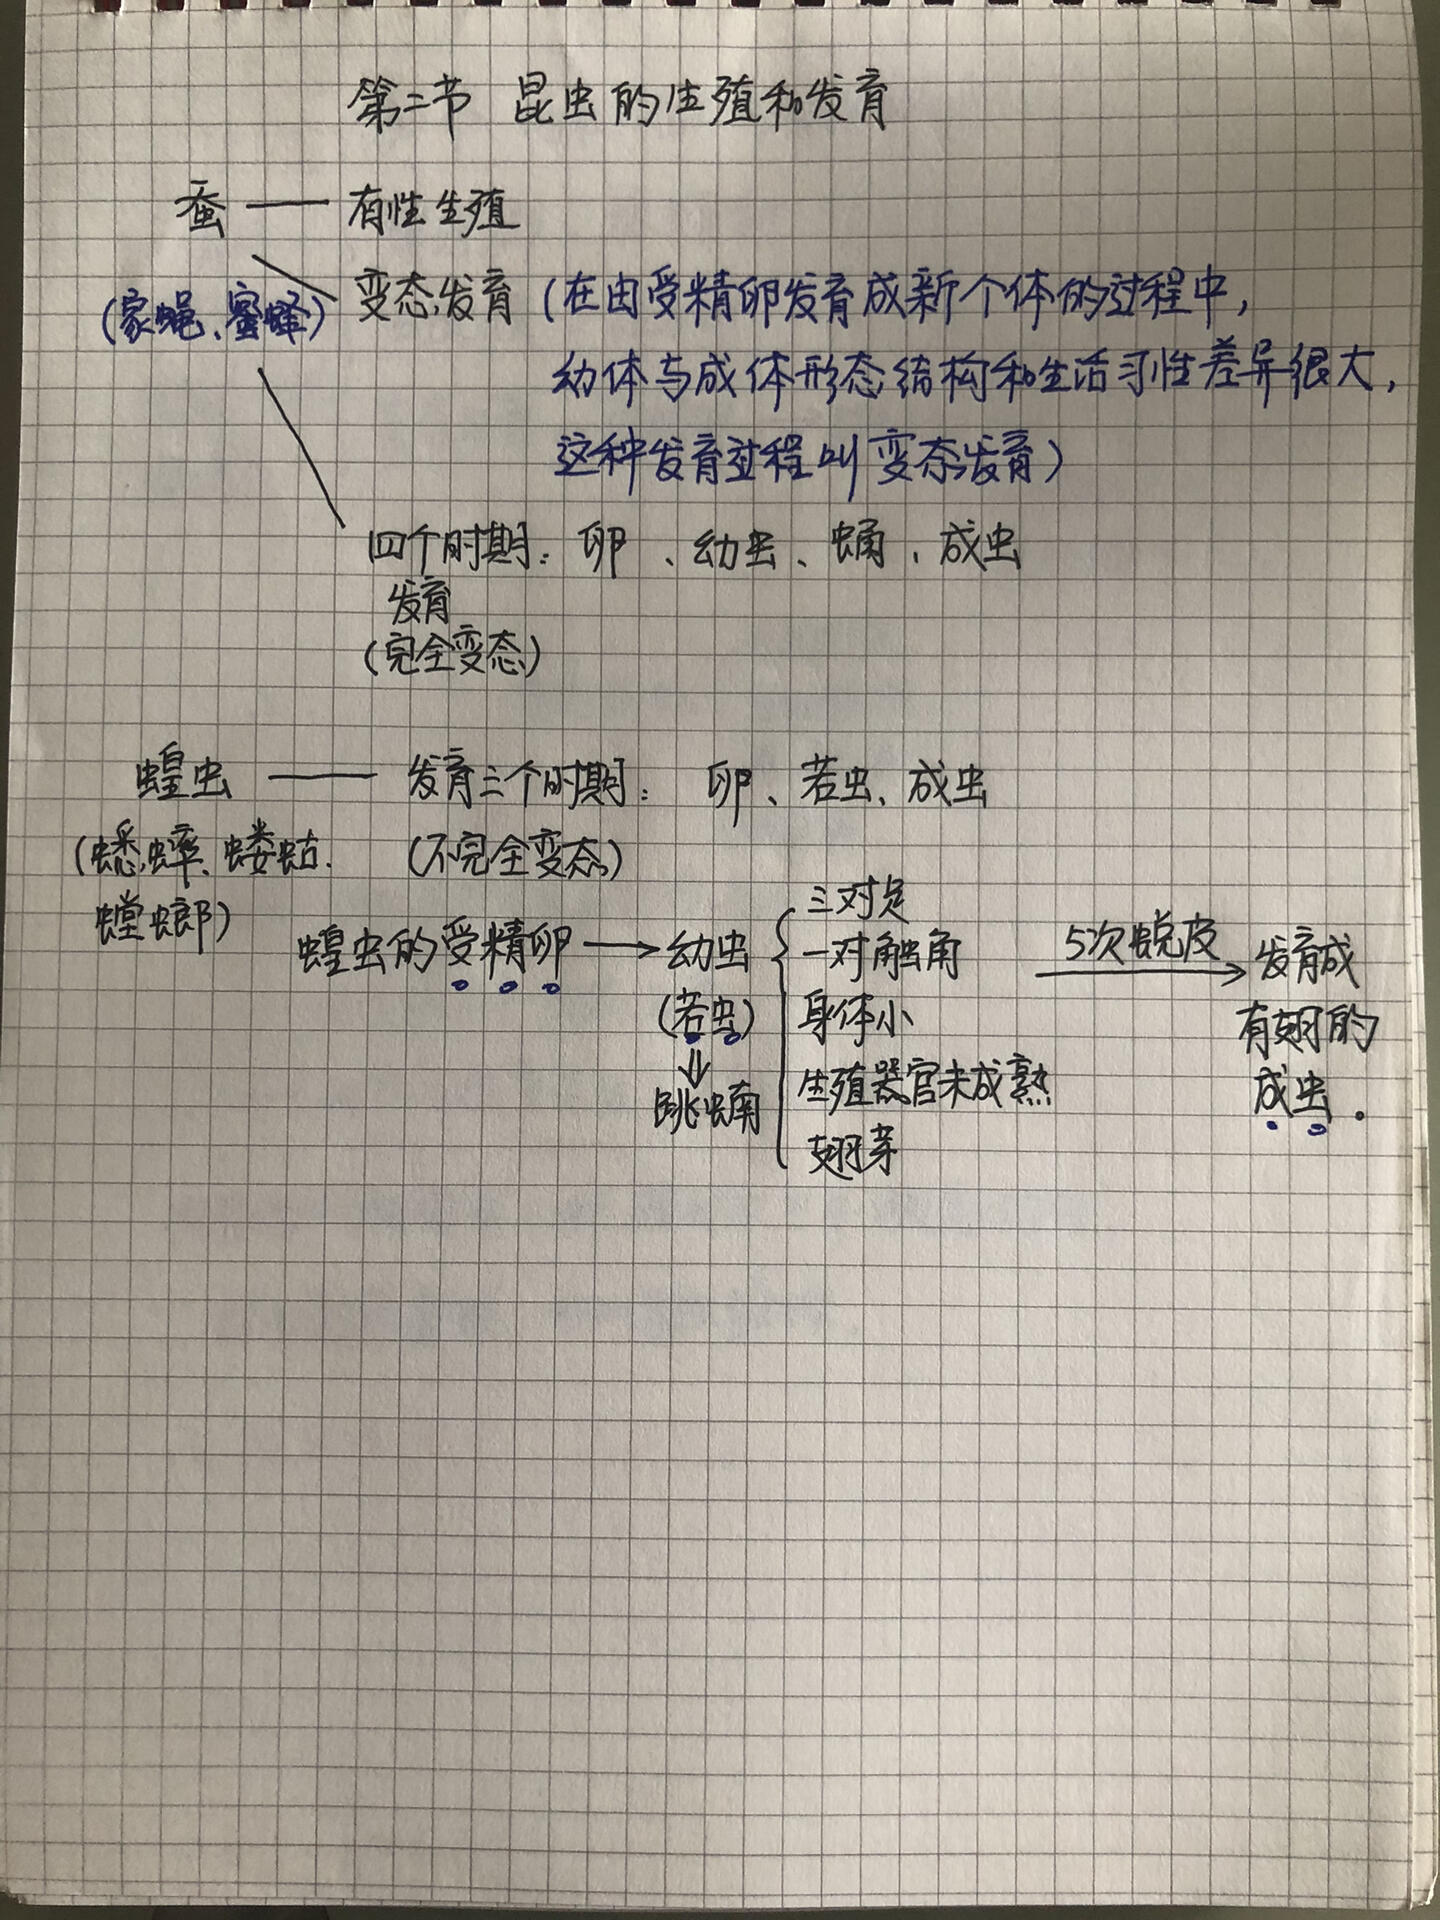 第二节 昆虫的生殖和发育
蚕 —— 有性生殖
(家蝇、蜜蜂) 变态发育 (在由受精卵发育成新个体的过程中,
幼体与成体形态结构和生活习性差异很大,
这种发育过程叫变态发育)
四个时期: 卵、幼虫、蛹、成虫
发育
(完全变态)
蝗虫 —— 发育三个时期: 卵、若虫、成虫
(蟋蟀、蝼蛄. (不完全变态)
螳螂)
蝗虫的受精卵 → 幼虫 { 三对足
一对触角
5次蜕皮 → 发育成
(若虫) 身体小 有翅的
⇓ 生殖器官未成熟 成虫.
跳蝻
翅芽